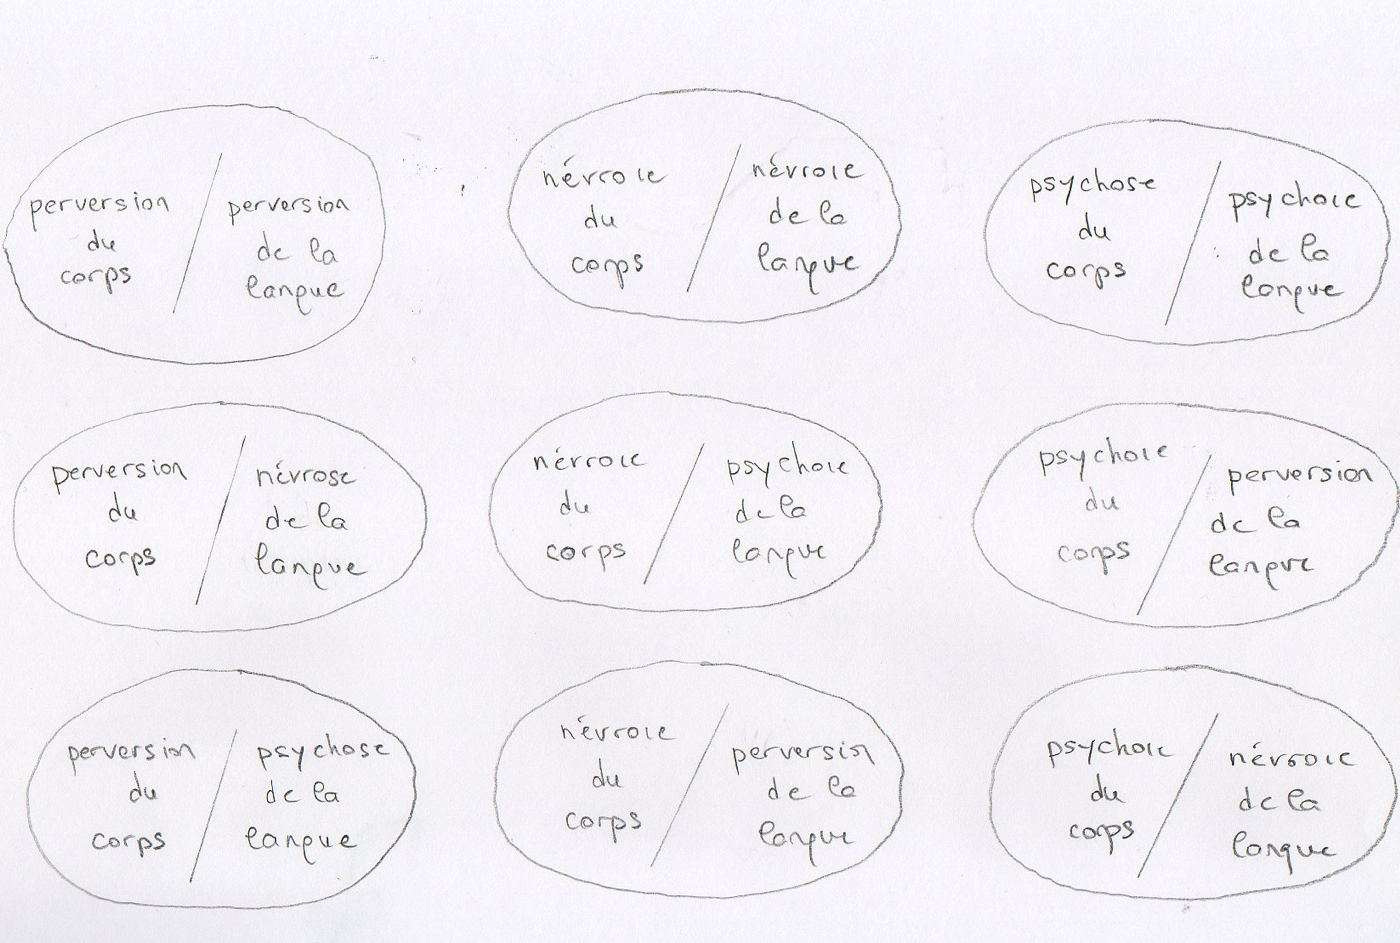 perversion
du
corps
perversion
de la
langue
névrose
du
corps
névrose
de la
langue
psychose
du
corps
psychose
de la
langue
perversion
du
corps
névrose
de la
langue
névrose
du
corps
psychose
de la
langue
psychose
du
corps
perversion
de la
langue
perversion
du
corps
psychose
de la
langue
névrose
du
corps
perversion
de la
langue
psychose
du
corps
névrose
de la
langue